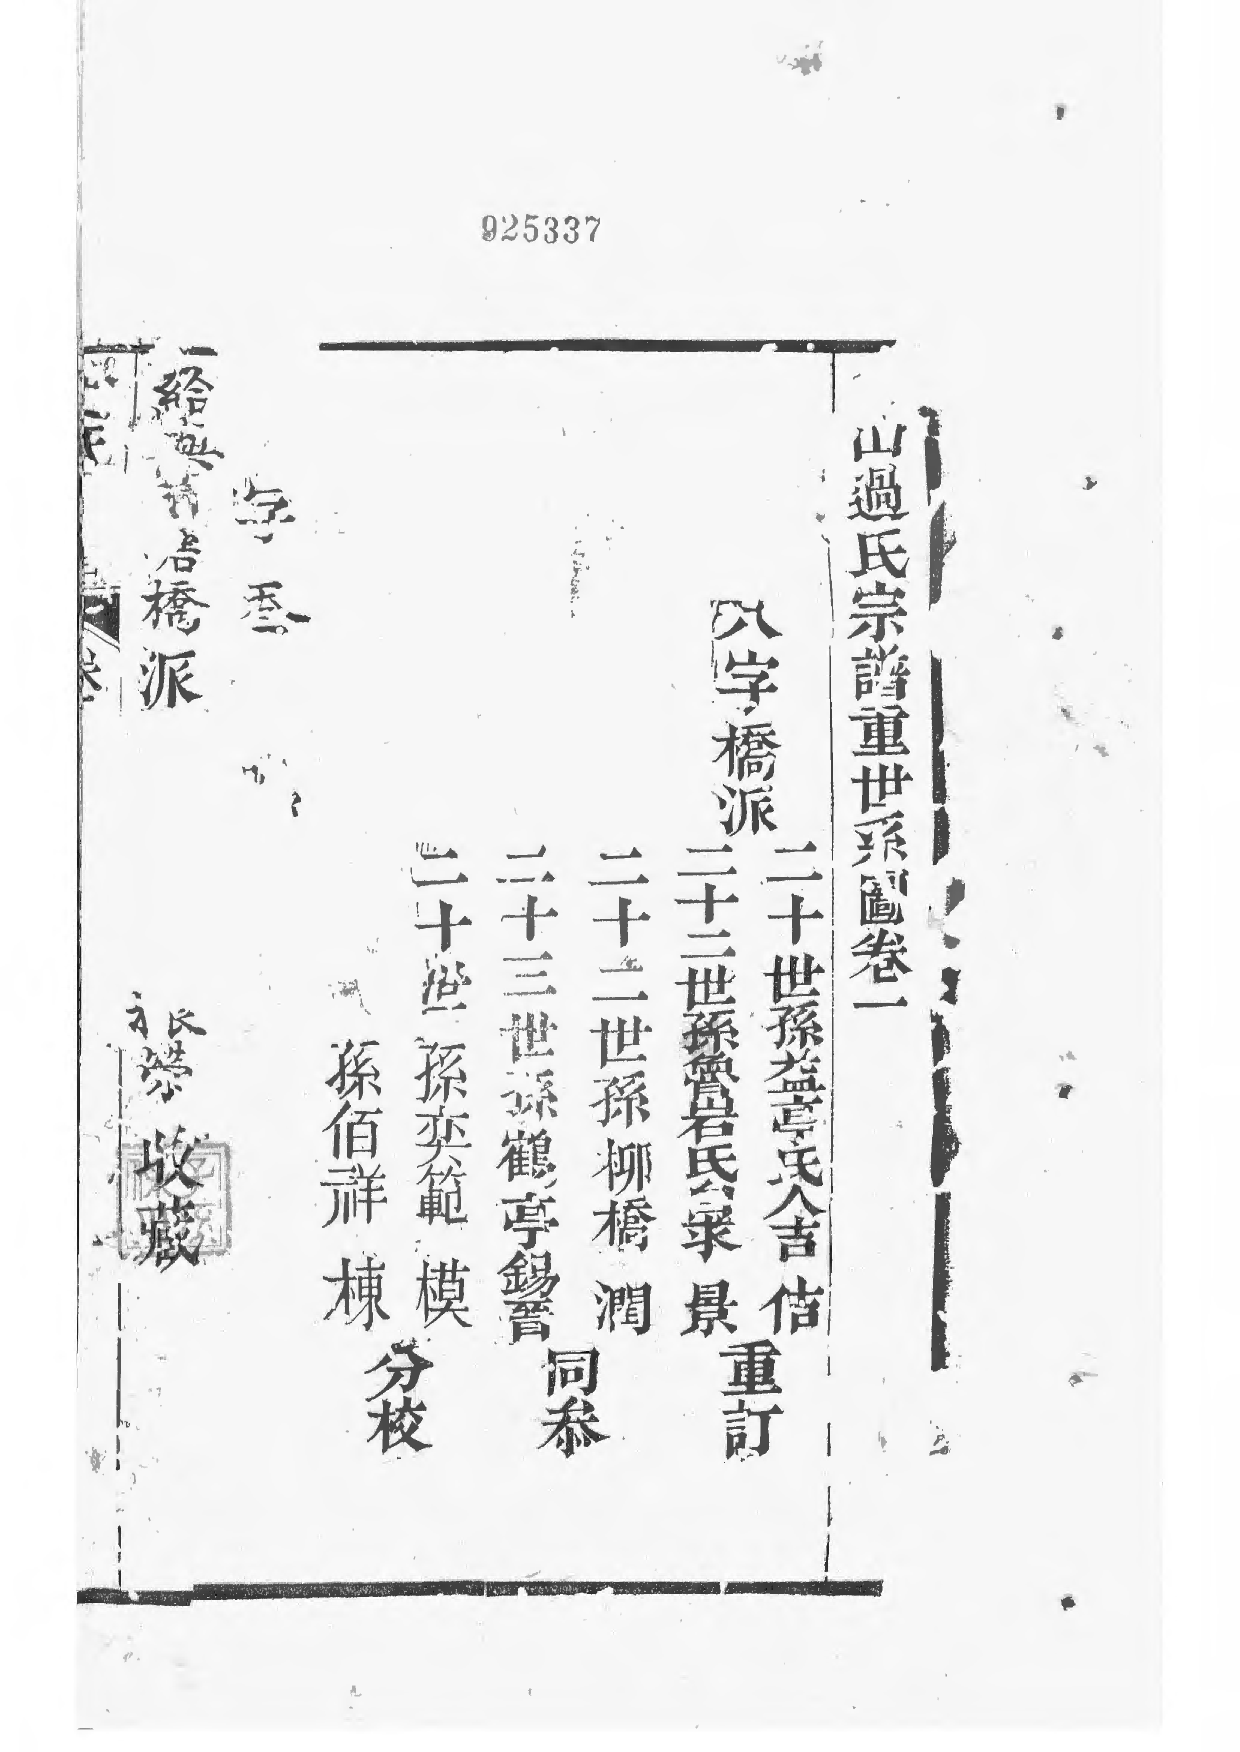 925337
山過氏宗譜重世系圖卷一
八字橋派
二十世孫益亭氏人吉 佶
二十二世孫魯岩氏 景
重訂
二十二世孫柳橋 潤
二十三世孫鶴亭錫晉
同叅
二十 世孫奕範 模
孫佰祥 棟
分校
字 叁
橋派
榮 收藏
卷